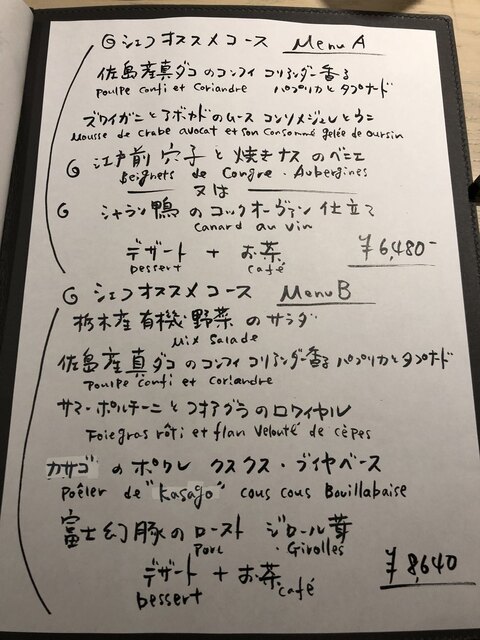 G シェフオススメコース Menu A
佐島産真ダコのコンフィ コリアンダー香る パプリカとタプナード
Poulpe confi et Coriandre
ズワイガニとアボカドのムース コンソメジュレとウニ
Mousse de crabe avocat et son consommé gelée de oursin
G 江戸前穴子と焼きナスのベニエ
Beignets de Congre・Aubergines
又は
G シャラン鴨のコックオーヴァン仕立て
Canard au vin
デザート + お茶 ¥6,480-
Dessert café
G シェフオススメコース Menu B
栃木産有機野菜のサラダ
Mix Salade
佐島産真ダコのコンフィ コリアンダー香る パプリカとタプナード
Poulpe confi et coriandre
サマーポルチーニとフォアグラのロワイヤル
Foie gras rôti et flan Velouté de cèpes
カサゴのポワレ クスクス・ブイヤベース
Poêler de "Kasago" cous cous Bouillabaise
富士幻豚のロースト ジロール茸
Porc ・Girolles
デザート + お茶 ¥8,640
Dessert café